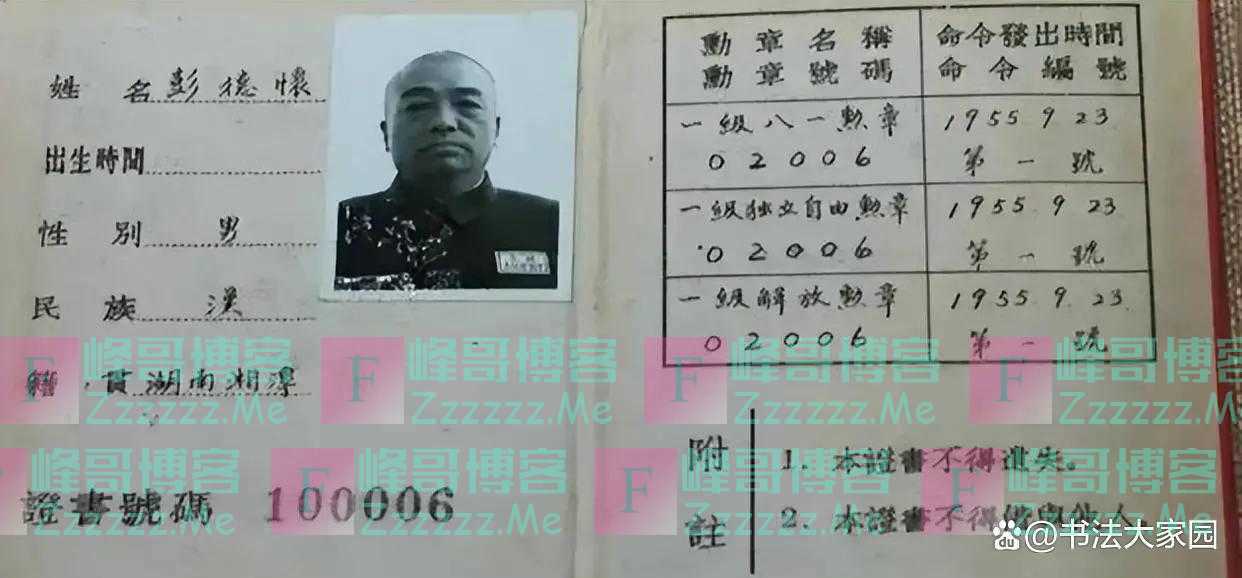 姓 名 彭德懷
出生時間
性 別 男
民 族 漢
籍 貫 湖南湘潭
證書號碼 100006
勳章名稱
勳章號碼
命令發出時間
命令編號
一級八一勲章
02006
1955 9 23
第一號
一級独立自由勲章
02006
1955 9 23
第一號
一級解放勲章
02006
1955 9 23
第一號
附註
1. 本證書不得遺失。
2. 本證書不得借與他人
F 峰哥博客
Zzzzzz.Me
F 峰哥博客
Zzzzzz.Me
F 峰哥博客
Zzzzzz.Me
F 峰哥博客
Zzzzzz.Me
F 峰哥博客
Zzzzzz.Me
F 峰哥博客
Zzzzzz.Me
F 峰哥博客
Zzzzzz.Me
F 峰哥博客
Zzzzzz.Me
du @书法大家园